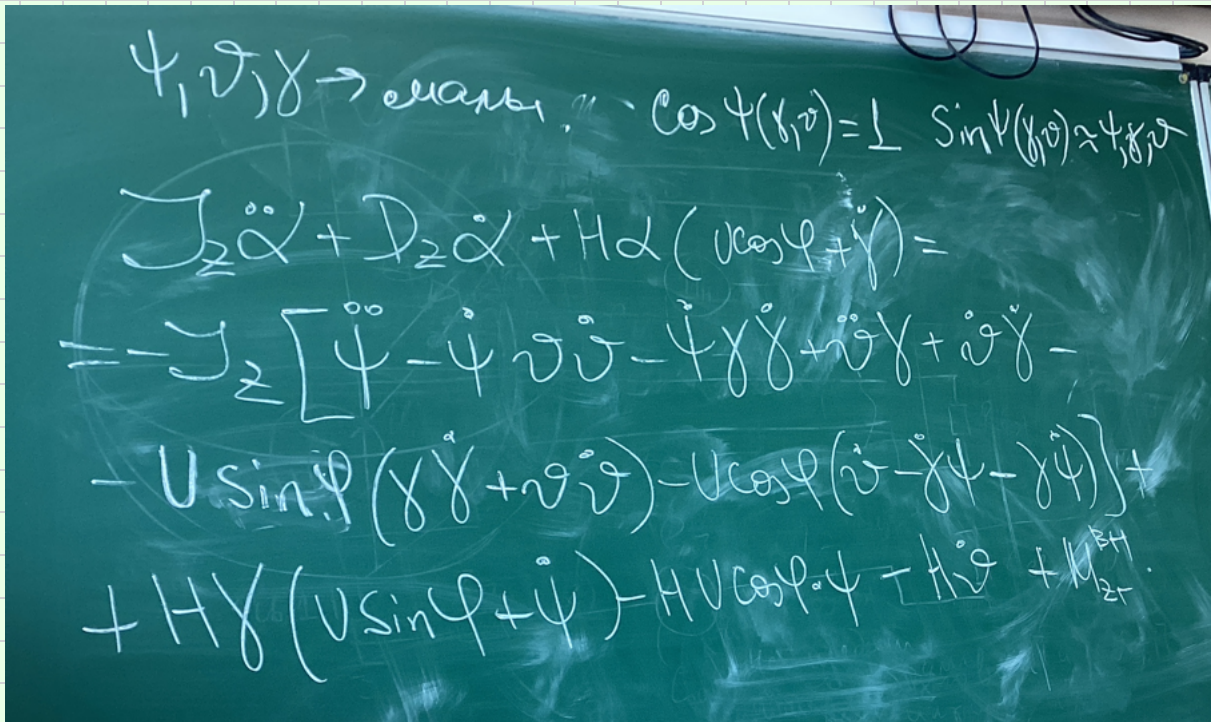 ψ, ϑ, γ → малы! Cos ψ(γ,ϑ) = 1 Sin ψ(γ,ϑ) ≈ ψ,γ,ϑ
J_z α̈ + D_z α̇ + Hα (Ucosφ + γ̇) =
= -J_z [ψ̈ - ψ̇ ϑϑ̇ - ψ̇γγ̇ + ϑ̈γ + ϑ̇γ̇ -
- U sinφ (γγ̇ + ϑϑ̇) - Ucosφ (ϑ̇ - γ̇ψ - γψ̇)] +
+ Hγ (Usinφ + ψ̇) - HUcosφ·ψ - Hϑ̇ + M_zr^вн.